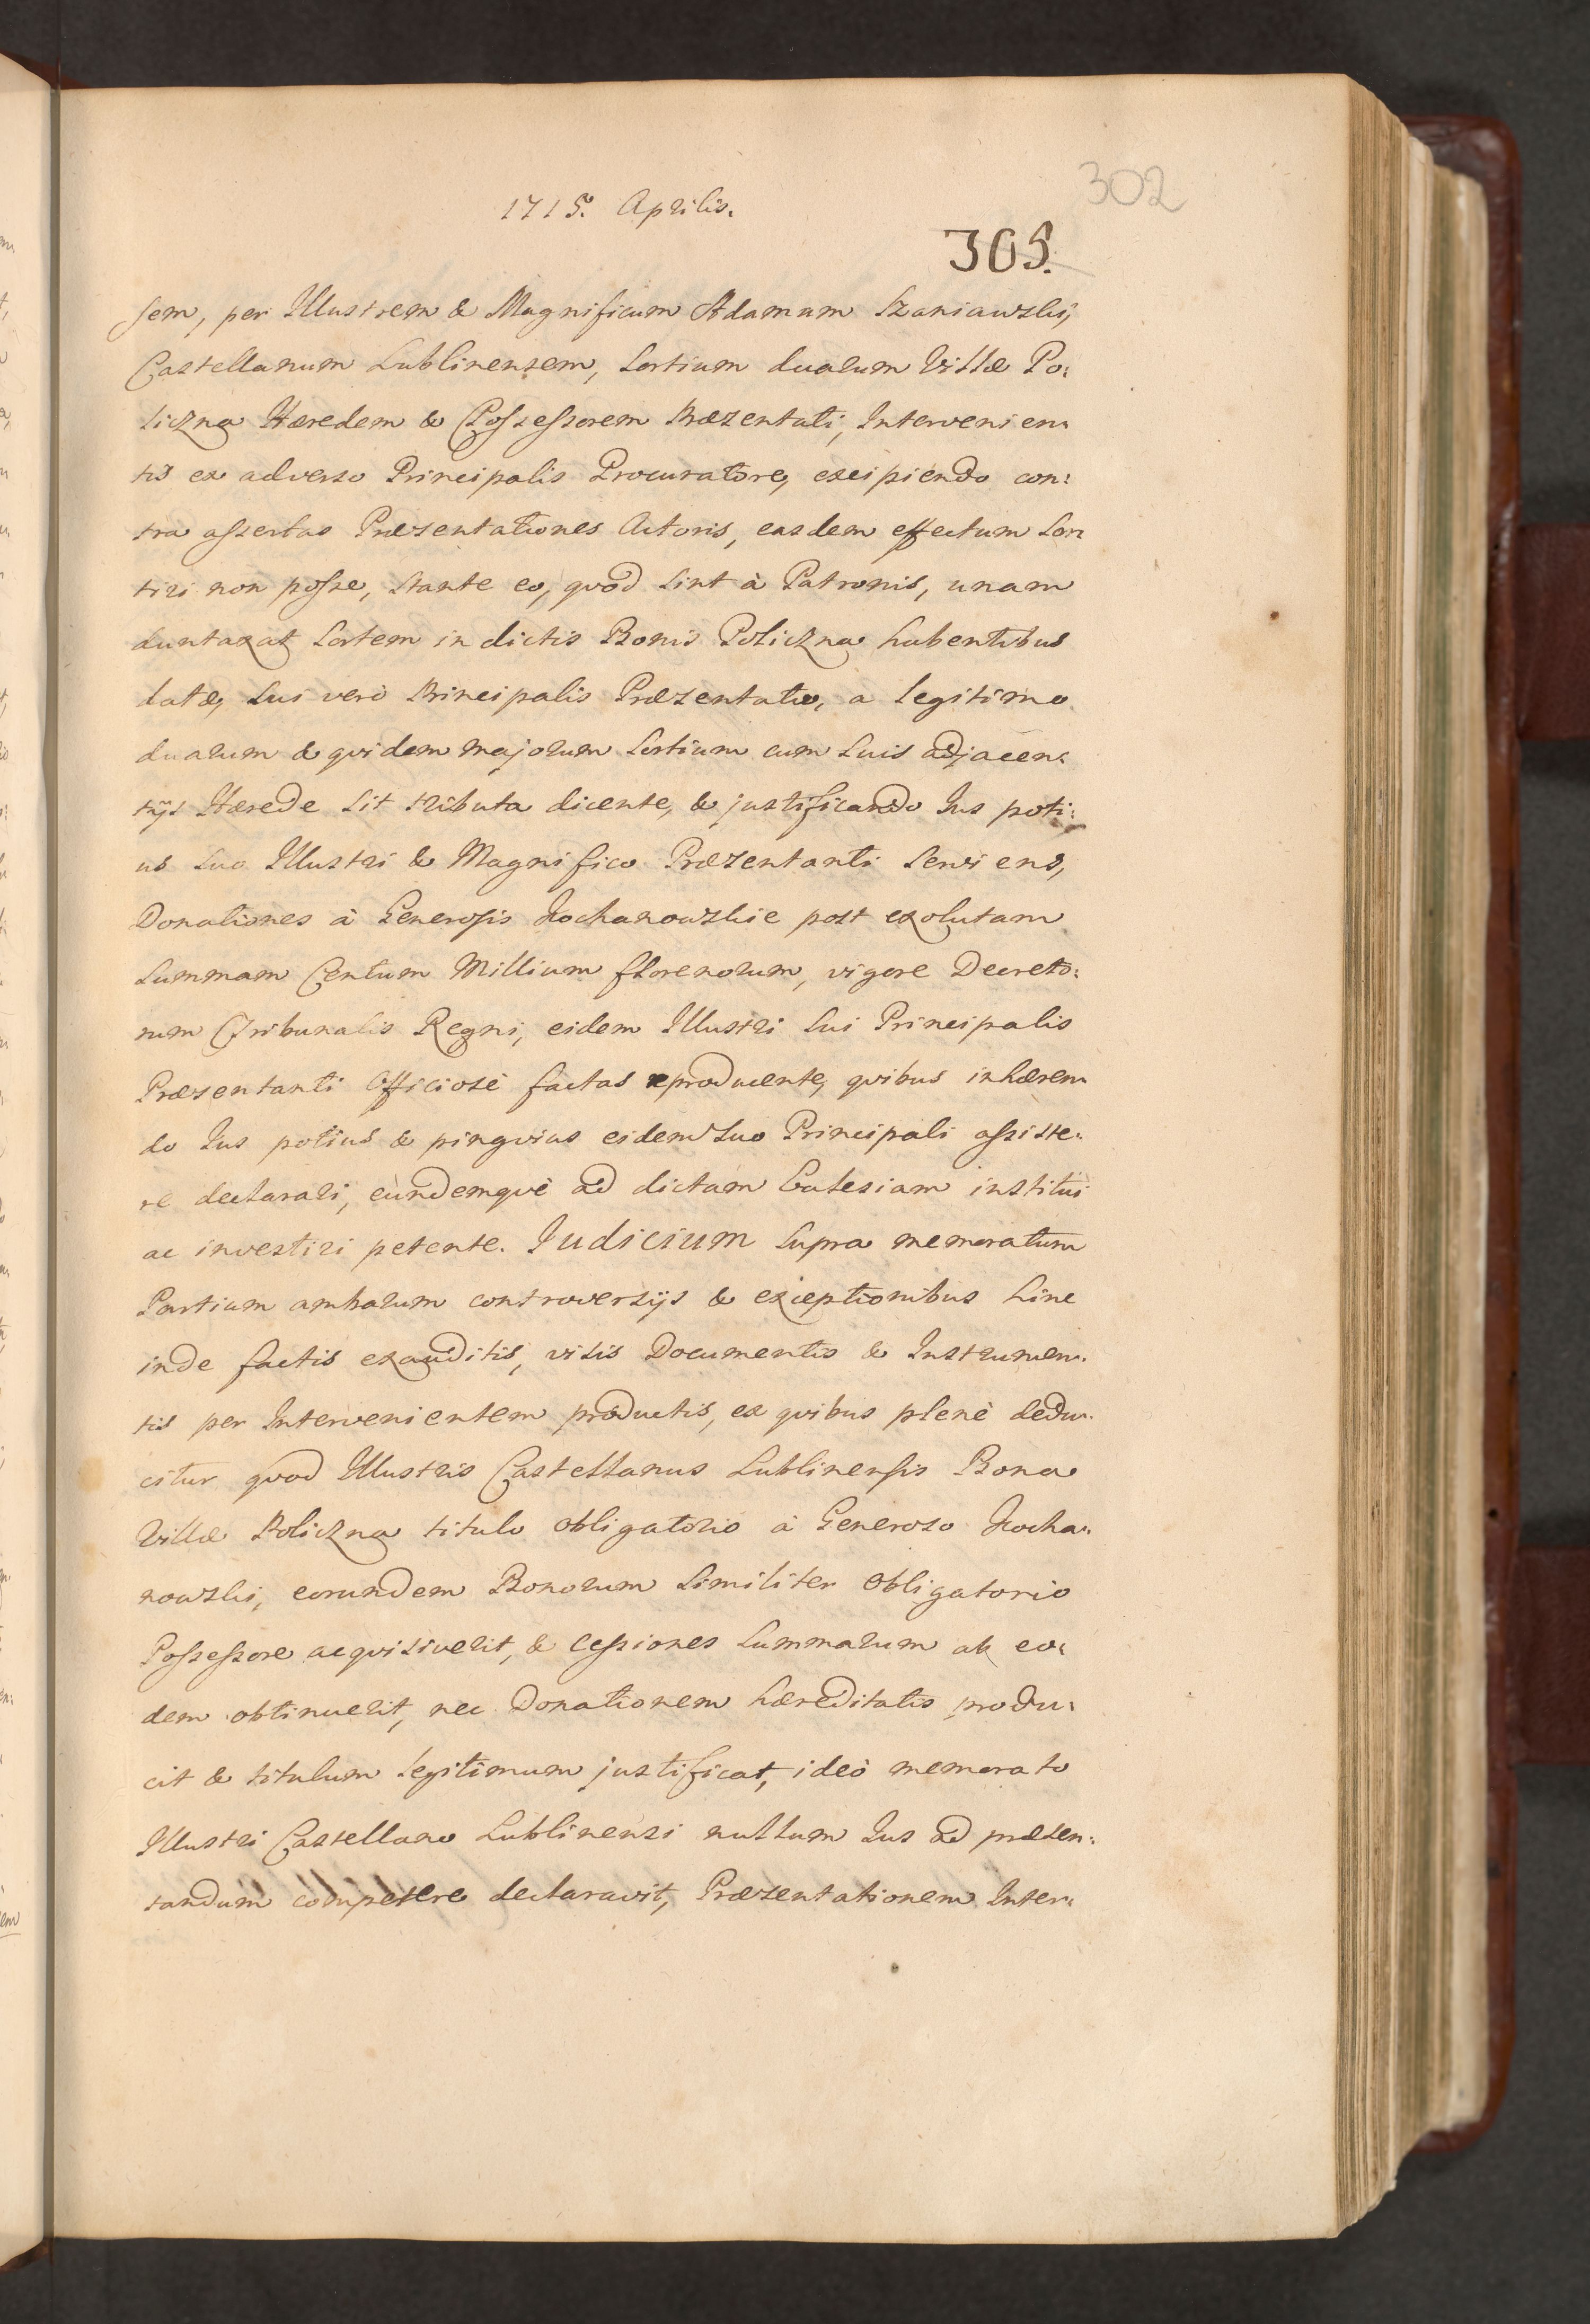 302
1715. Aprilis.
305.
sem, per Illustrem & Magnificum Adamum Szaniawski,
Castellanum Lublinensem, Sortium duarum Villæ Po:
liczna Hæredem & Possessorem Præsentati, Intervenien:
tis ex adverso Principalis Procuratore, excipiendo con:
tra assertas Præsentationes Actoris, easdem effectum Sor:
tiri non posse, stante eo, quod sint à Patronis, unam
duntaxat Sortem in dictis Bonis Policzna habentibus
datæ, sui verò Principalis Præsentatio, a legitimo
duarum & quidem majorum Sortium cum suis adjacen:
tijs Hærede sit tributa dicente, & justificando Jus poti:
us suo Illustri & Magnifico Præsentanti serviens,
Donationes à Generosis Kochanowskie post exolutam
summam Centum Millium florenorum, vigore Decreto:
rum Tribunalis Regni, eidem Illustri sui Principalis
Præsentanti Officiosè factas reproducente, quibus inhæren:
do Jus potius & pinguius eidem suo Principali assiste:
re declarari, eundemquè ad dictam Ecclesiam institui
ac investiri petente. Judicium supra memoratum
Partium ambarum controversijs & exceptionibus hinc
inde factis exauditis, visis Documentis & Instrumen:
tis per Intervenientem productis, ex quibus plenè dedu:
citur quod Illustris Castellanus Lublinensis Bona
Villæ Policzna titulo obligatorio à Generoso Kocha:
nowski, eorundem Bonorum similiter obligatorio
Possessore acquisiverit, & cessiones summarum ab eo:
dem obtinuerit, nec Donationem hæreditatis produ:
cit & titulum legitimum justificat, ideò memorato
Illustri Castellano Lublinensi nullum Jus ad præsen:
tandum competere declaravit, Præsentationem Inter: